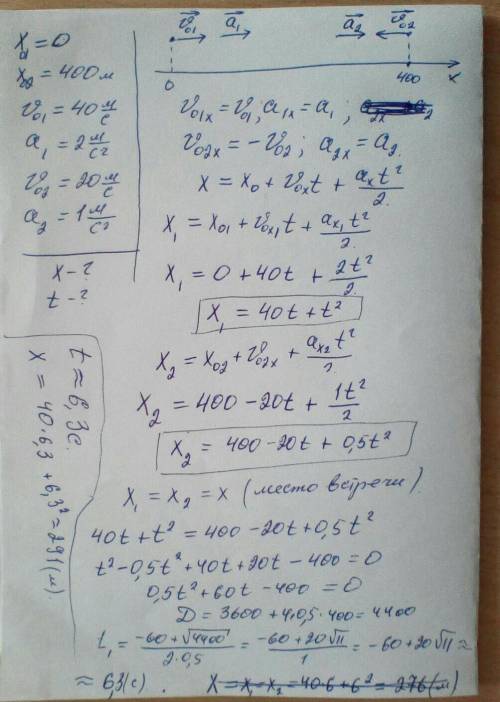 x₀₁ = 0
x₀₂ = 400 м
v₀₁ = 40 м/с
a₁ = 2 м/с²
v₀₂ = 20 м/с
a₂ = 1 м/с²
x - ?
t - ?
v₀₁ a₁ a₂ v₀₂
0 400 x
v₀₁ₓ = v₀₁; a₁ₓ = a₁;
v₀₂ₓ = -v₀₂; a₂ₓ = a₂.
x = x₀ + v₀ₓt + aₓt²/2.
x₁ = x₀₁ + v₀ₓ₁t + aₓ₁t²/2.
x₁ = 0 + 40t + 2t²/2.
x₁ = 40t + t²
x₂ = x₀₂ + v₀₂ₓ + aₓ₂t²/2.
x₂ = 400 - 20t + 1t²/2
x₂ = 400 - 20t + 0,5t²
x₁ = x₂ = x (место встречи).
40t + t² = 400 - 20t + 0,5t²
t² - 0,5t² + 40t + 20t - 400 = 0
0,5t² + 60t - 400 = 0
D = 3600 + 4·0,5·400 = 4400
t₁ = (-60 + √4400)/(2·0,5) = (-60 + 20√11)/1 = -60 + 20√11 ≈
≈ 6,3 (с). x = x₁ = x₂ = 40·6 + 6² = 276 (м)
t ≈ 6,3 с.
x = 40·6,3 + 6,3² = 291 (м).